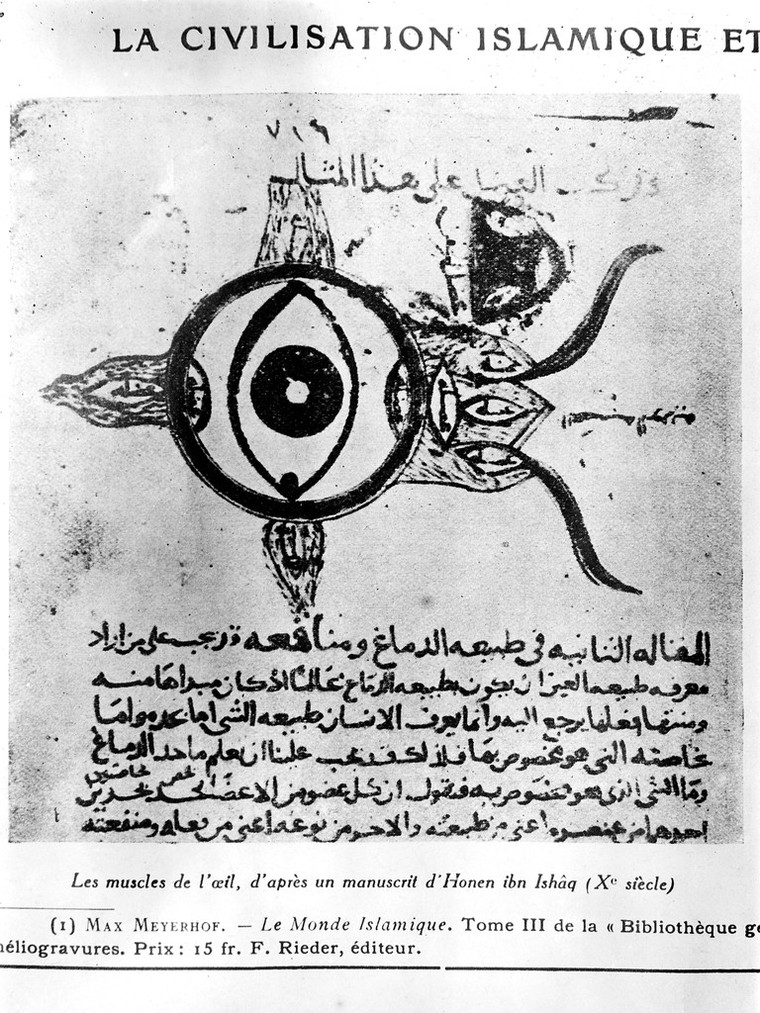 LA CIVILISATION ISLAMIQUE ET
العين على هذا المثال
المقاله الثانيه فى طبيعه الدماغ ومنافعه قد يجب على من اراد
معرفه طبيعه العين ان يكون بطبيعه الدماغ عالمًا اذ كان مبداها منه
ومنتهى فعلها يرجع اليه وانما يعرف الانسان طبيعه الشى اما بحده واما
بخاصته التى هو مخصوص بها فلذلك قد يجب علينا ان نعلم ما حد الدماغ
وما الشى الذى هو مخصوص به فنقول ان كل عضو من الاعضا يحد بحدين
احدهما من عنصره اعنى من طبيعته والاخر من نوعه اعنى من فعله ومنفعته
Les muscles de l'œil, d'après un manuscrit d'Honen ibn Ishâq (Xe siècle)
(1) MAX MEYERHOF. — Le Monde Islamique. Tome III de la « Bibliothèque gé
héliogravures. Prix : 15 fr. F. Rieder, éditeur.